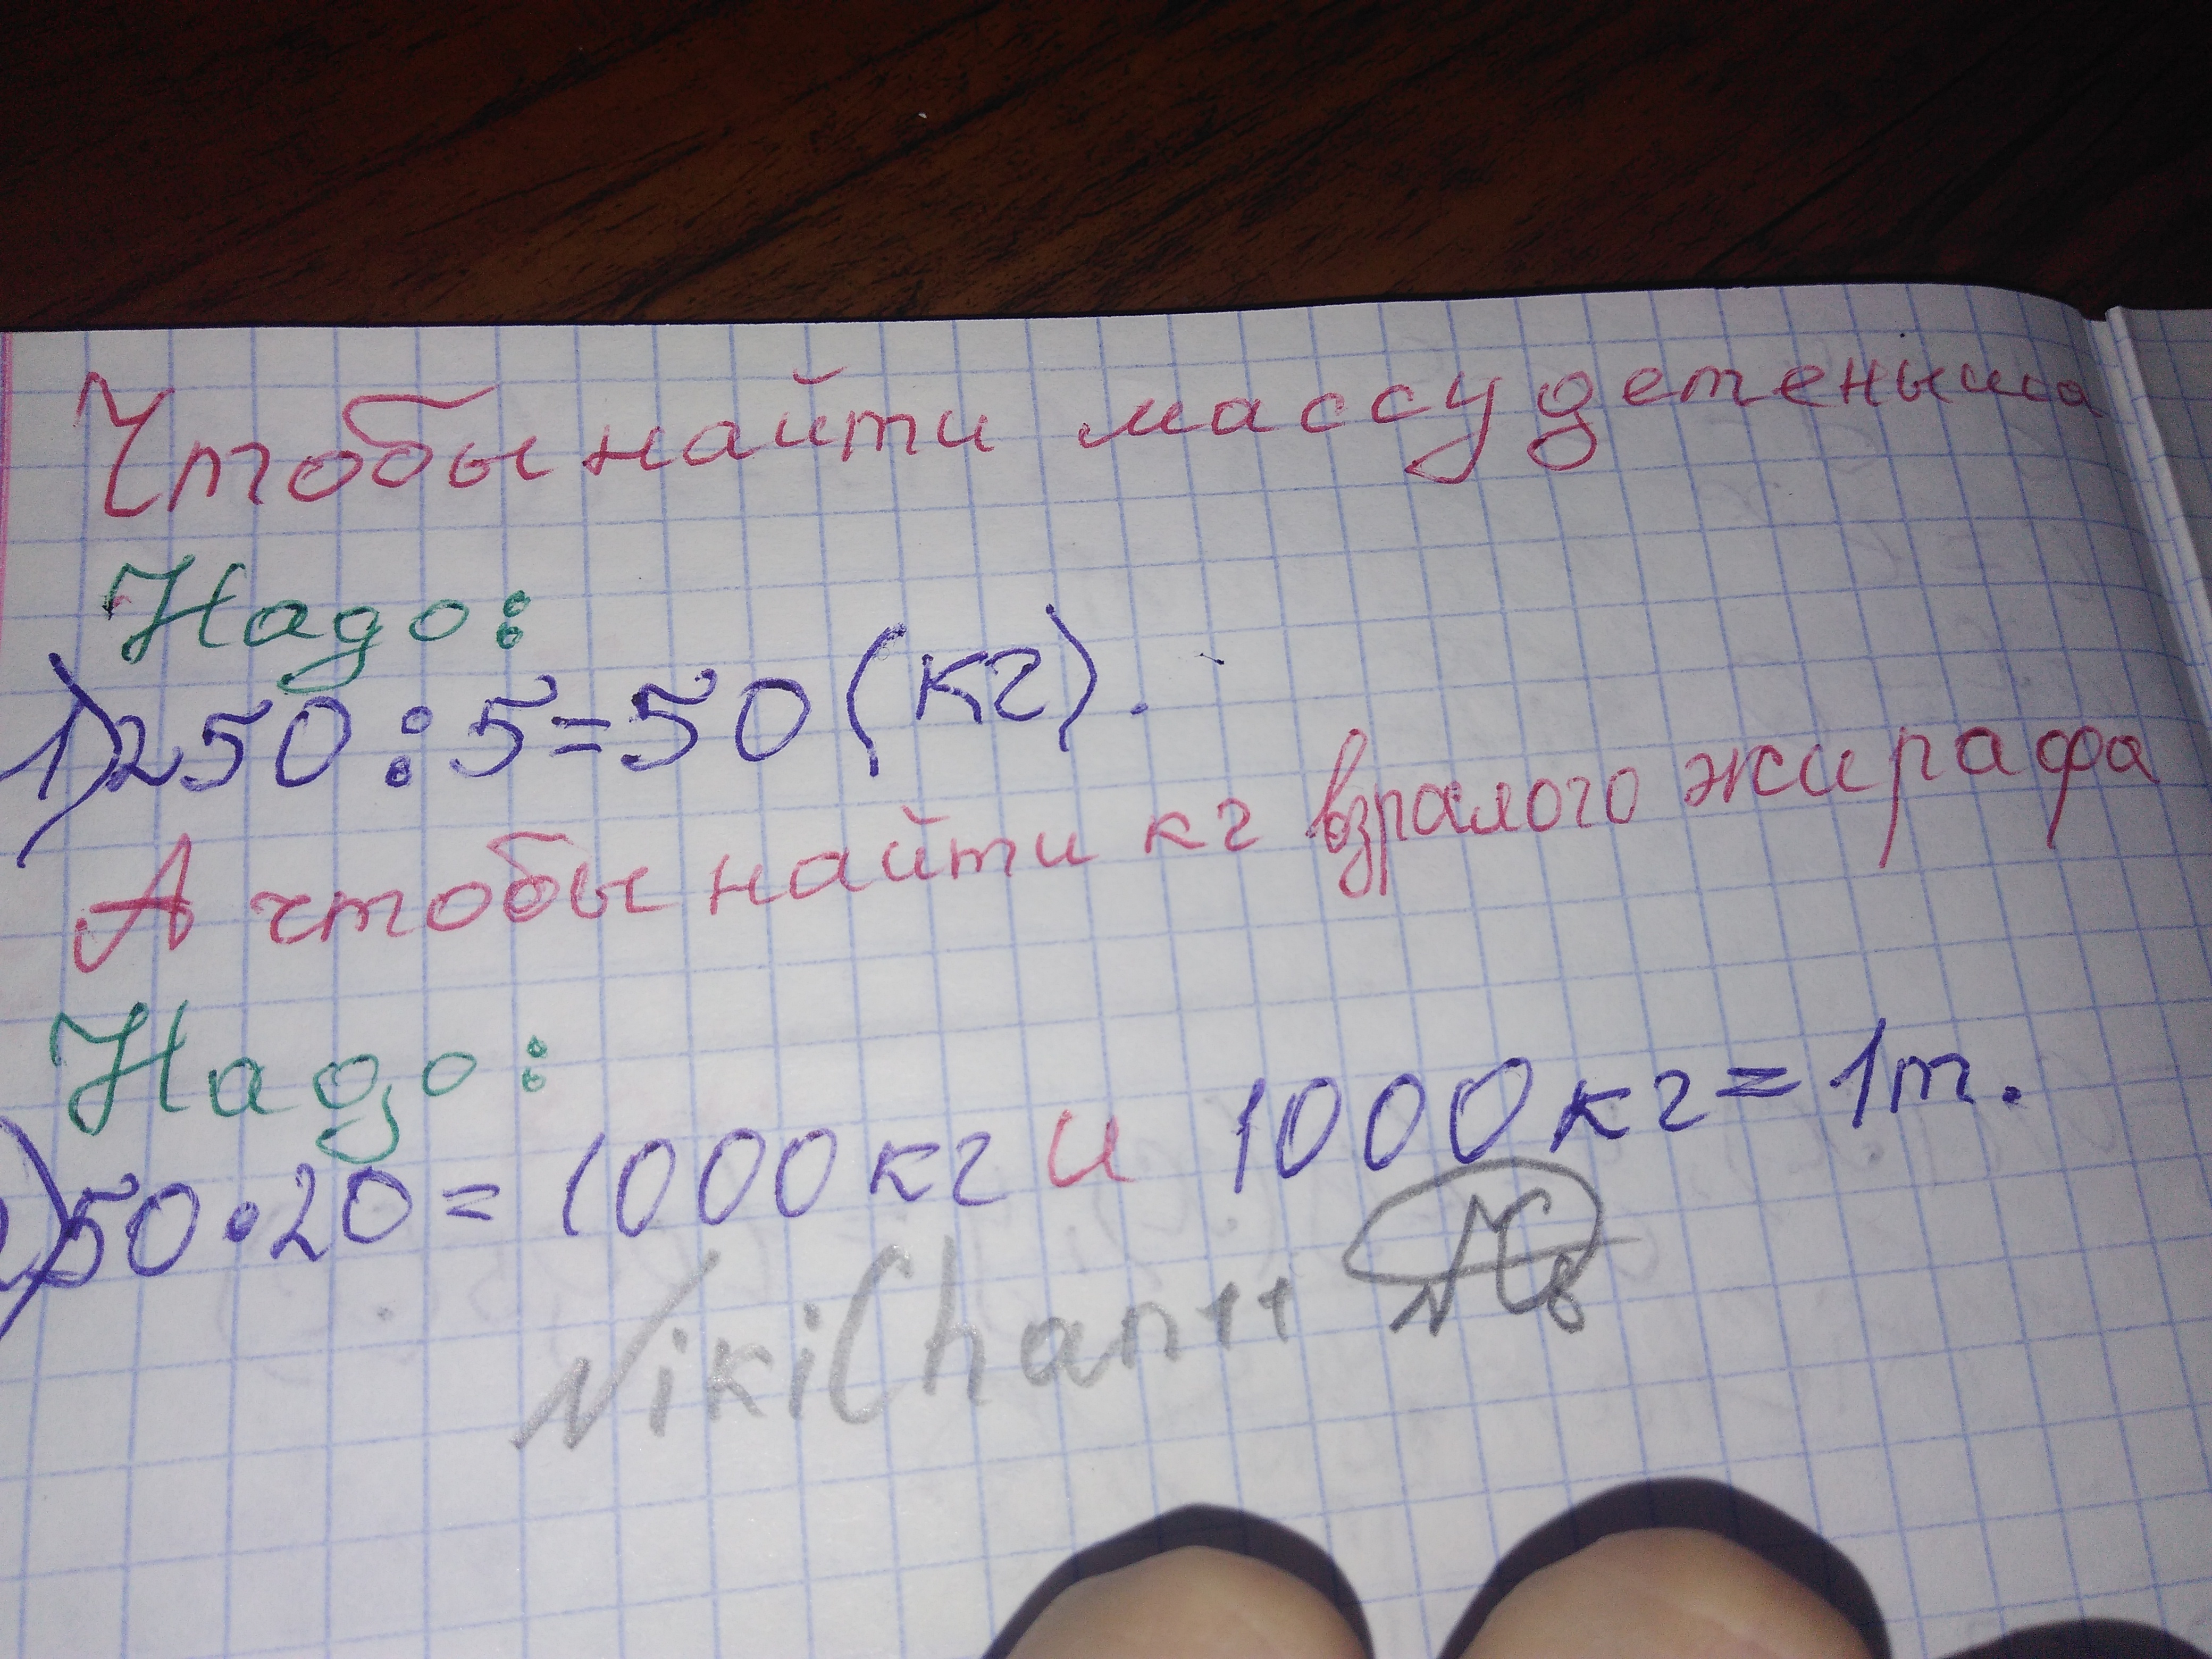 Чтобы найти массу детеныша
Надо:
1) 250 : 5 = 50 (кг).
А чтобы найти кг взралого жирафа
Надо:
2) 50 · 20 = 1000 кг и 1000 кг = 1т.
NikiChan11